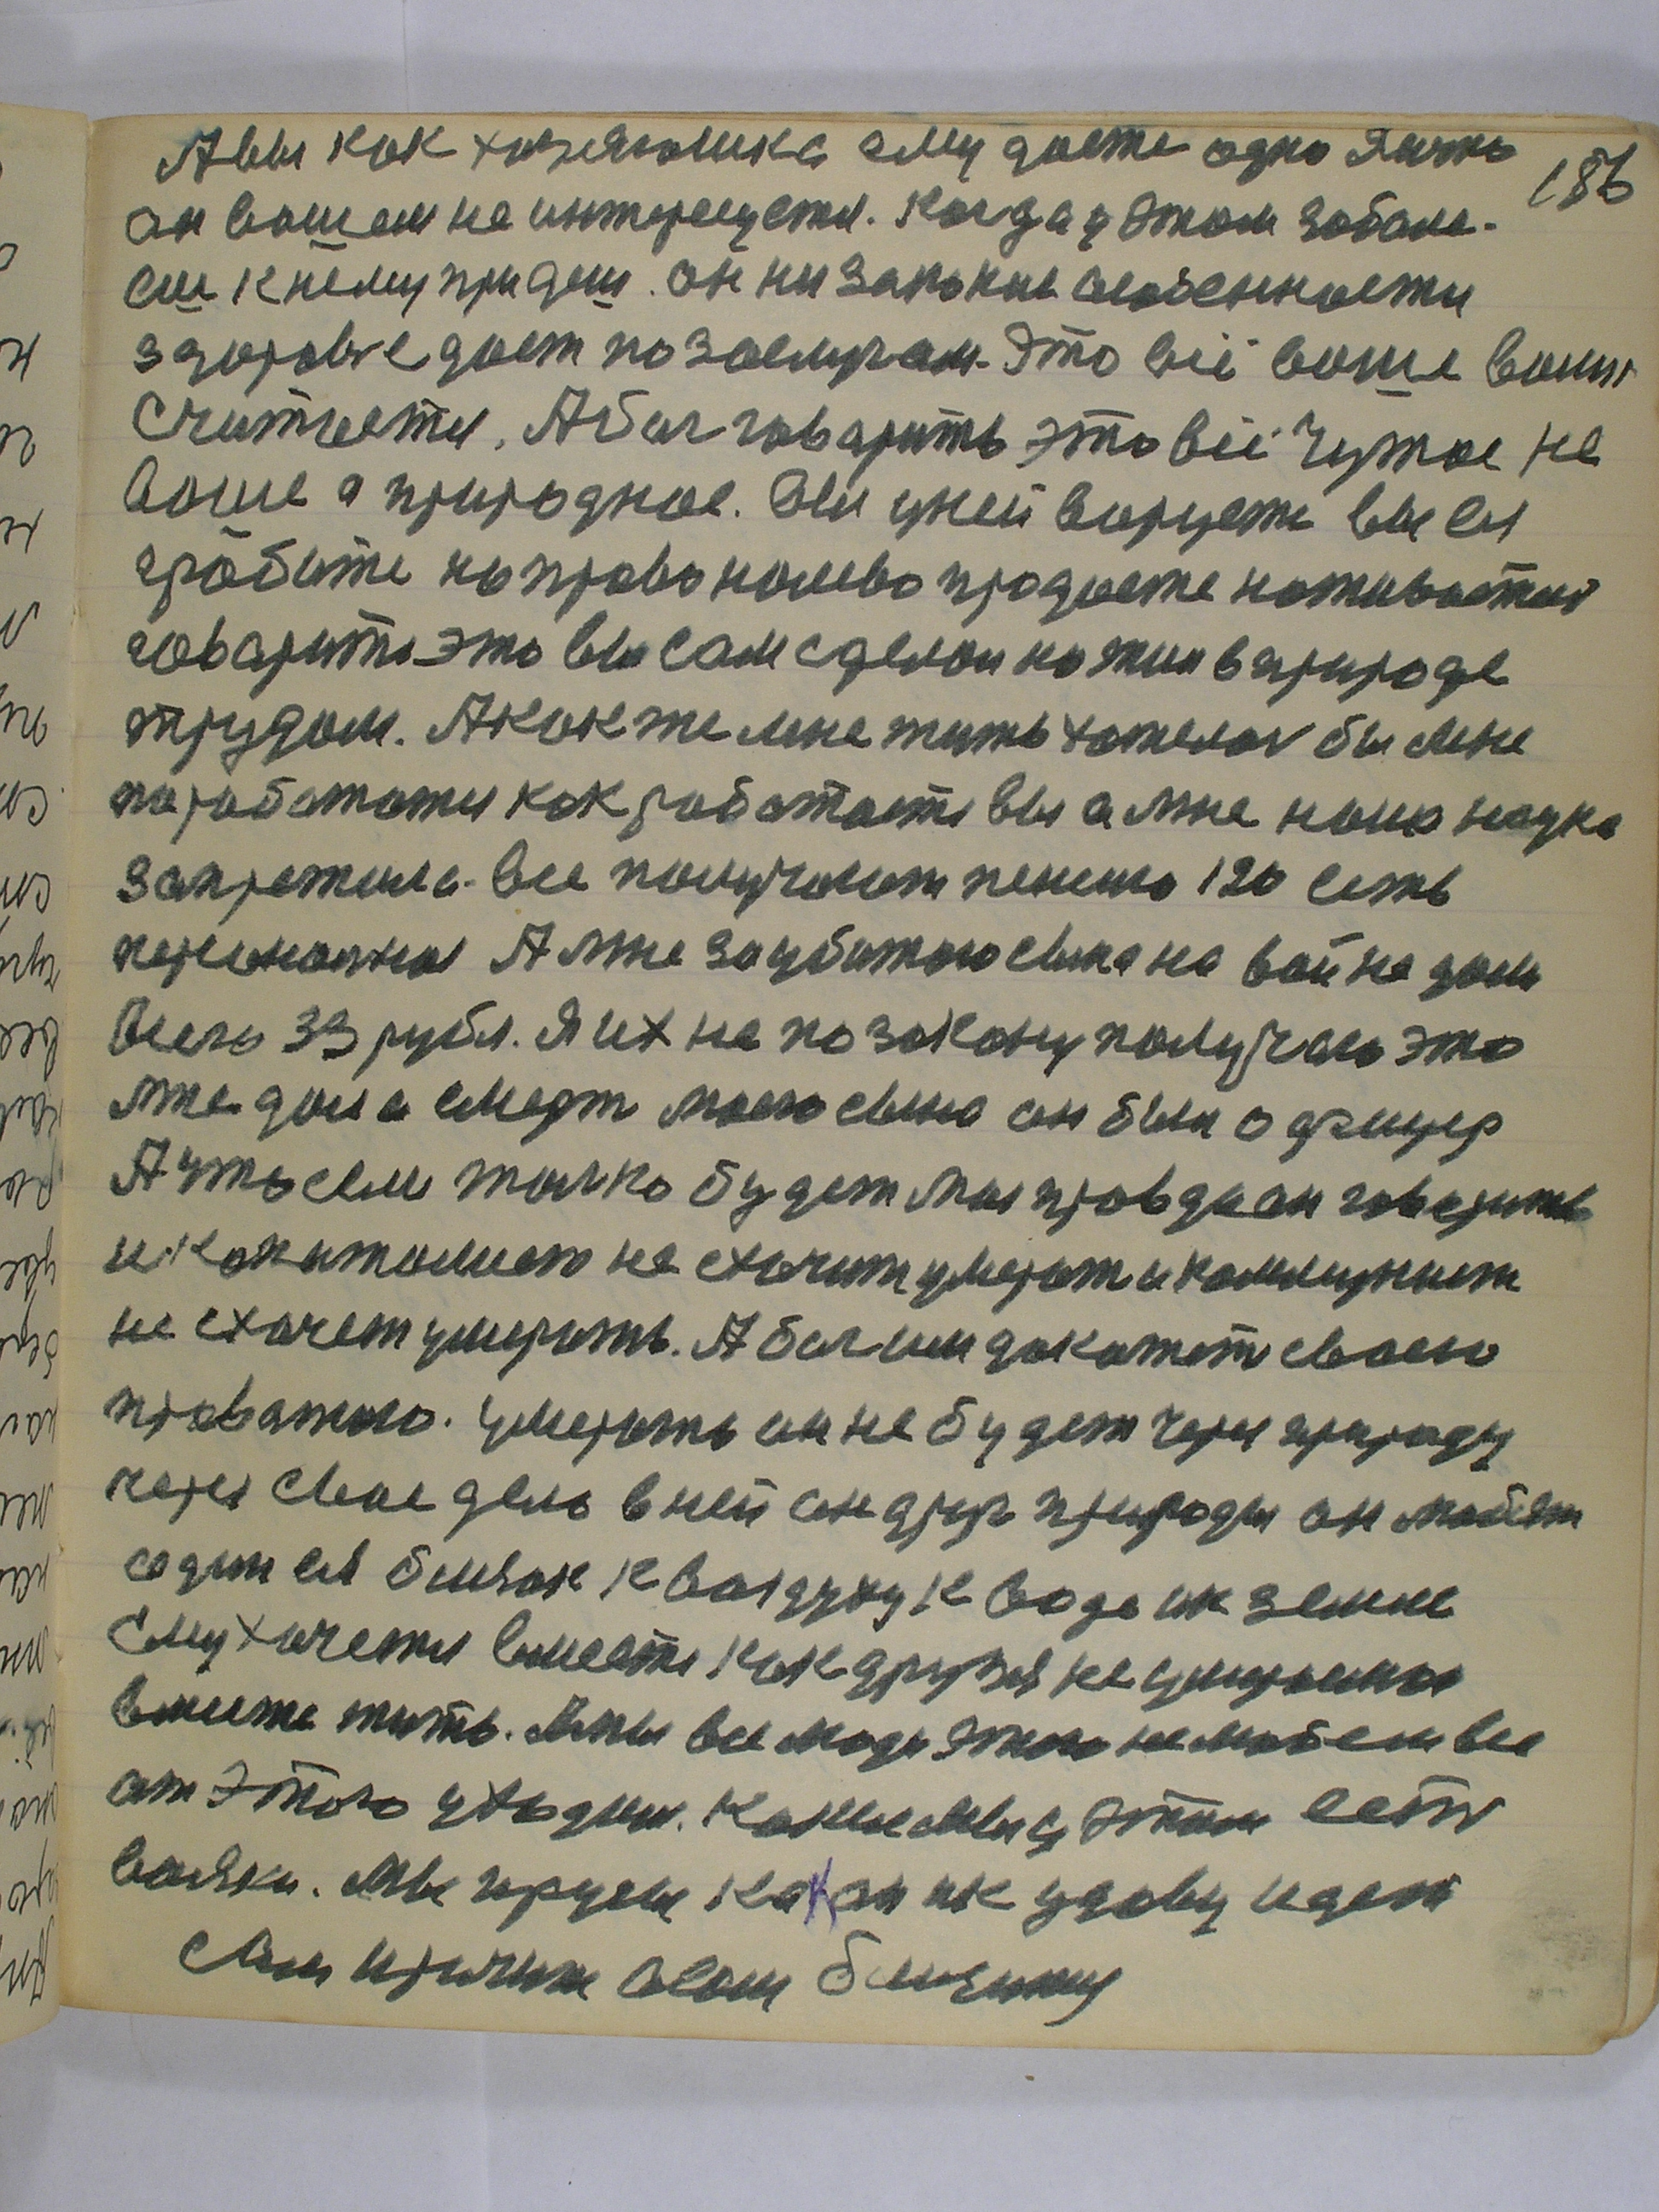 186
А вы как хозяюшка ему даете одно Яичко
он вашем не интересуется. Когда у этом заболе-
еш к нему придеш. он ни за какие особенности
здоровье дает по заслугам. Это всё ваше вами
Считается. А бог говарить это всё Чужое не
ваше а природное. Вы у ней воруете вы ея
грабите направо налево продаете наживаетися
говарить это вы сам сделай наживи в природе
трудом. А как же мне жить хотелось бы мне
поработати как работаете вы а мне наша наука
запретила. Все получают пенсию 120 есть
А мне за убитого сына на войне дали
Всего 33 рубл. Я их не по закону получаю это
мне дала смерт моего сына он был офицер
А что если только будет моя правда он говарить
и капиталист не схочит умерат и коммунист
не схочет умирать. А бог им докажет своею
правотою. умерать он не будет через природу
через свое дело в ней он друг природы он любит
один ея близок к воздуху к воде и к земле
Ему хочется вместе как друзья не умираемо
вместе жить. Мы все люди этого не любем все
от этого уходим. Какие мы у этом есть
вояки. Мы грузем как он и к удаву идет
Сам кричит своим близким